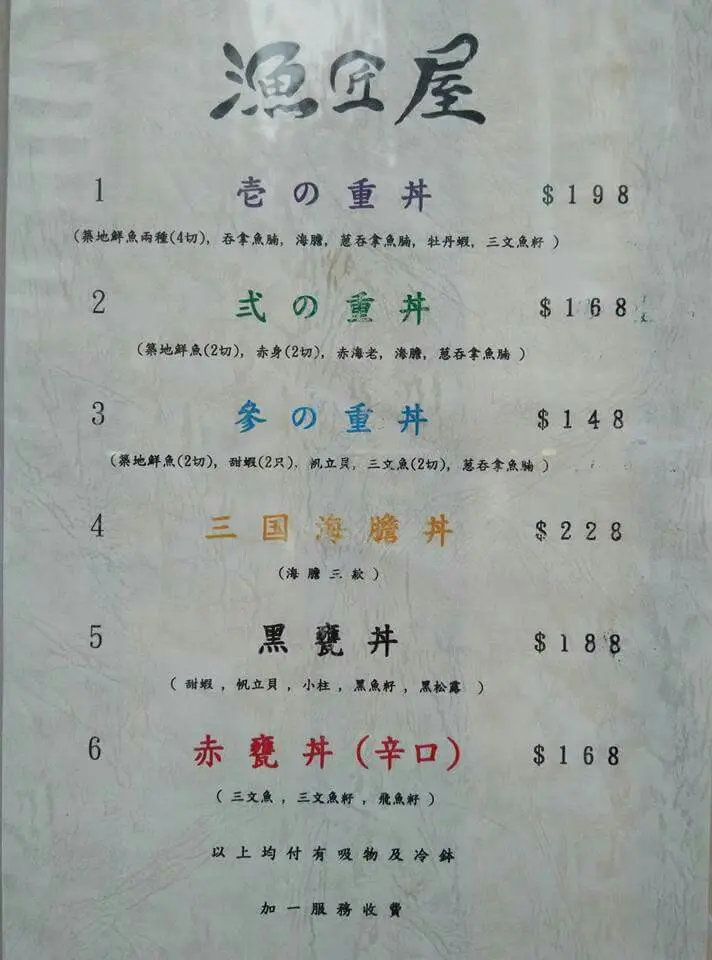 漁匠屋
1 壱の重丼 $198
(築地鮮魚兩種(4切), 吞拿魚腩, 海膽, 蔥吞拿魚腩, 牡丹蝦, 三文魚籽 )
2 弍の重丼 $168
(築地鮮魚(2切), 赤身(2切), 赤海老, 海膽, 蔥吞拿魚腩 )
3 參の重丼 $148
(築地鮮魚(2切), 甜蝦(2只), 帆立貝, 三文魚(2切), 蔥吞拿魚腩 )
4 三国海膽丼 $228
(海膽三款)
5 黑甕丼 $188
( 甜蝦 , 帆立貝 , 小柱 , 黑魚籽 , 黑松露 )
6 赤甕丼(辛口) $168
( 三文魚 , 三文魚籽 , 飛魚籽 )
以上均付有吸物及冷鉢
加一服務收費